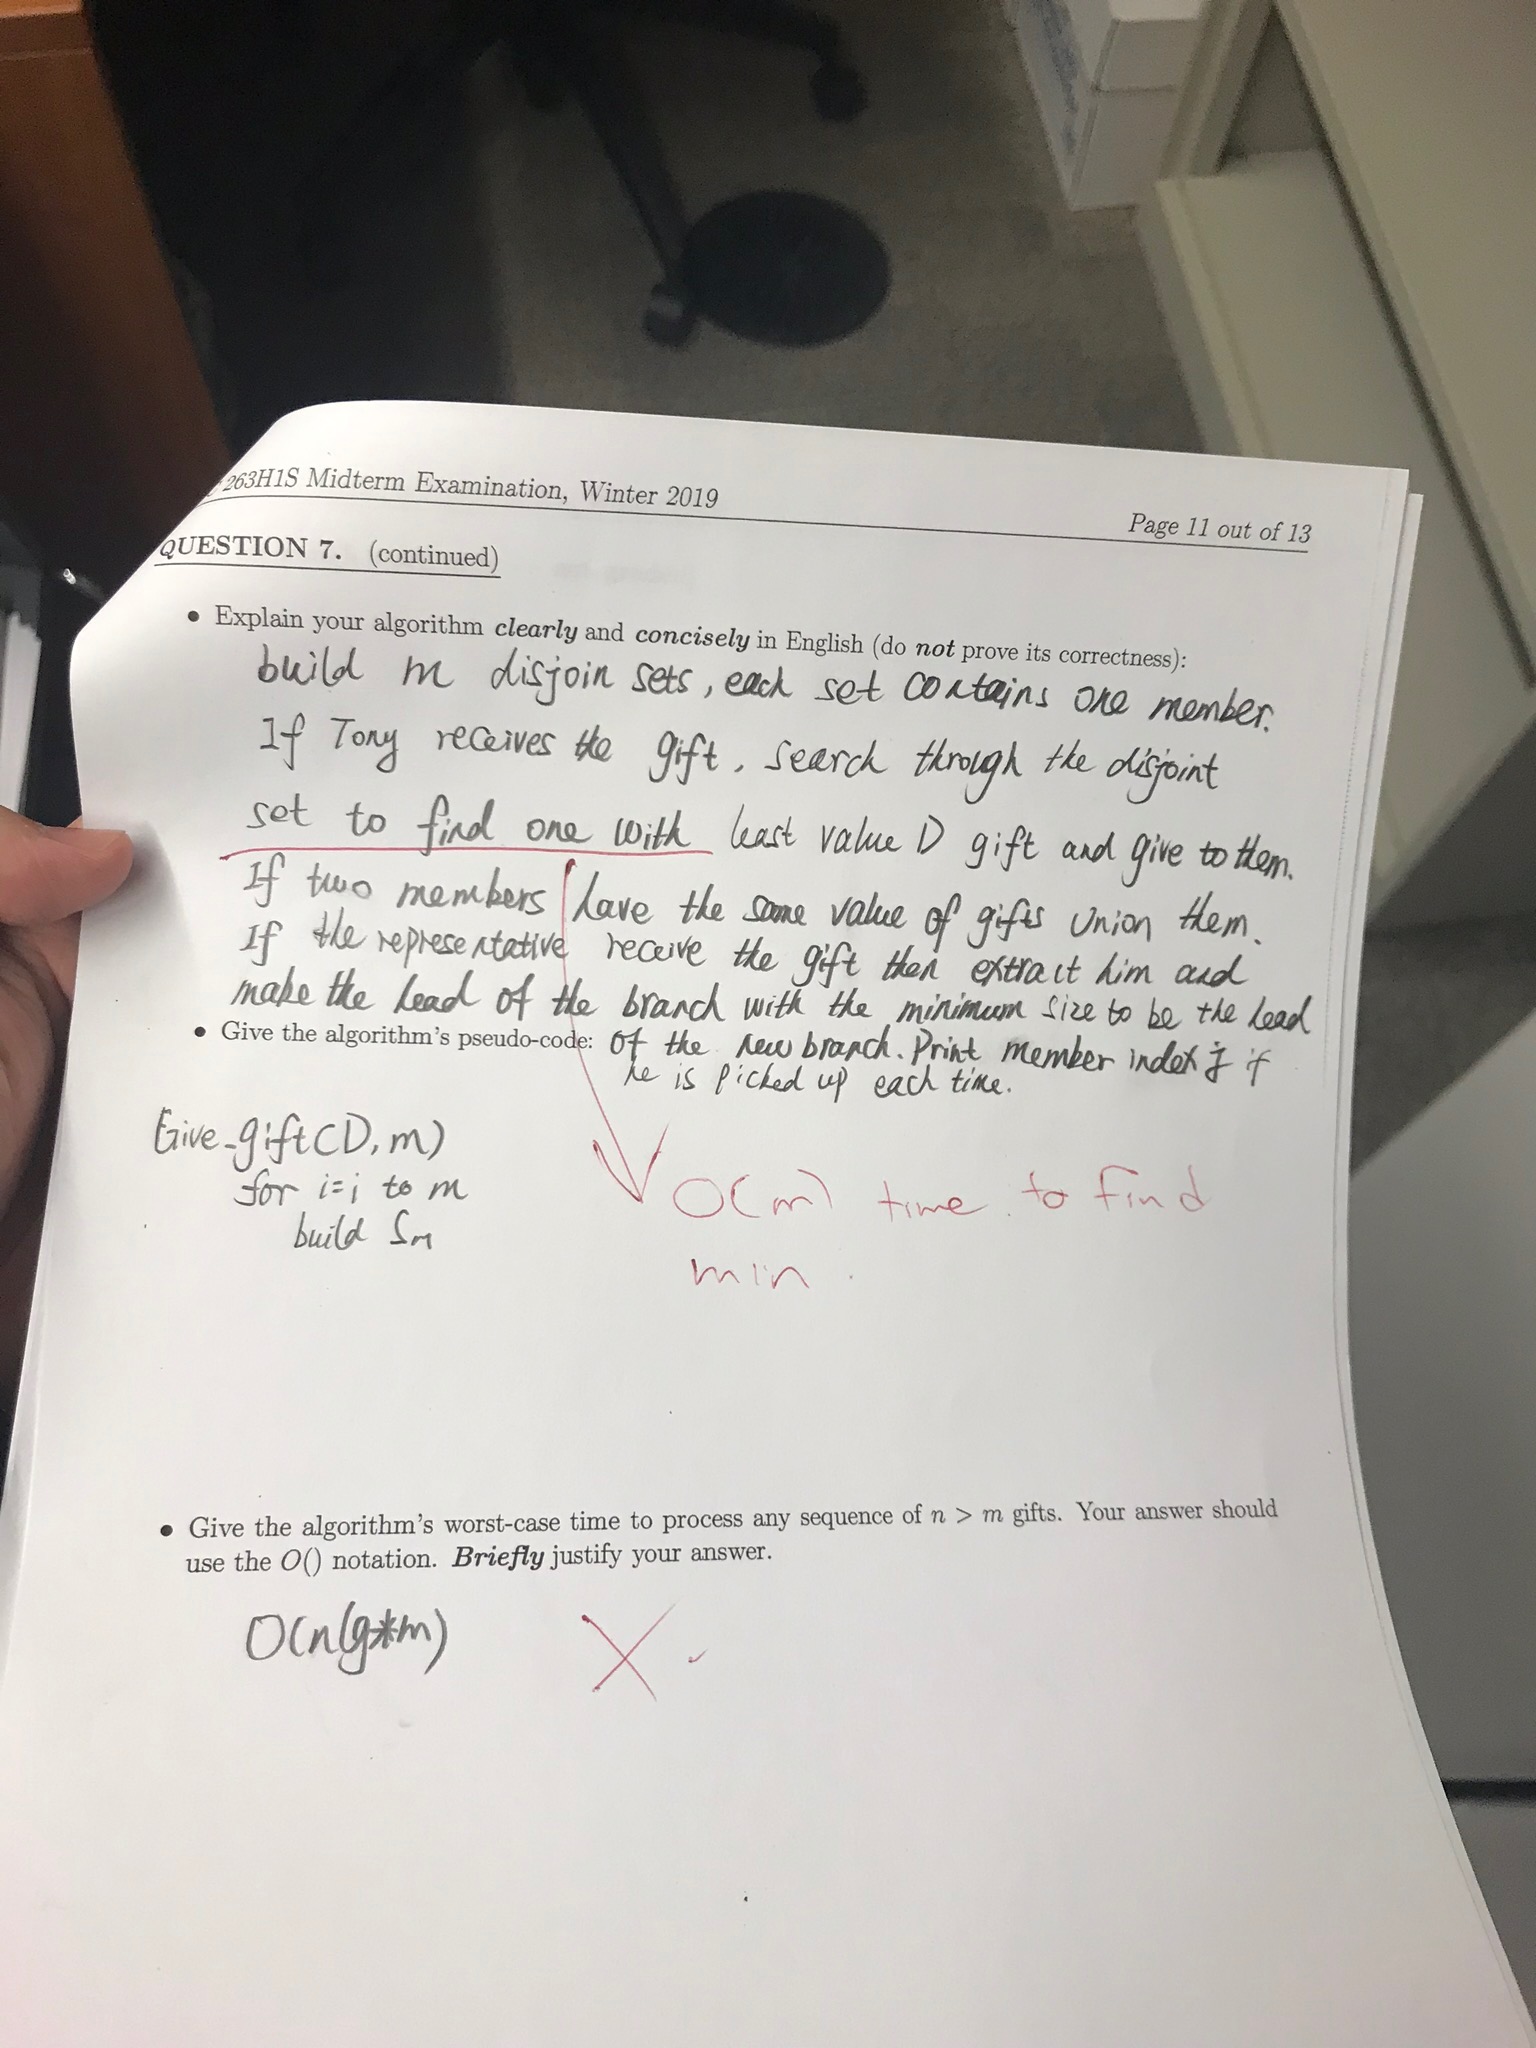 263H1S Midterm Examination, Winter 2019
Page 11 out of 13
QUESTION 7. (continued)
• Explain your algorithm clearly and concisely in English (do not prove its correctness):
build m disjoin sets, each set contains one member.
If Tony receives the gift, search through the disjoint
set to find one with least value D gift and give to them.
If two members have the same value of gifts union them.
If the representative receive the gift then extract him and
make the head of the branch with the minimum size to be the head
• Give the algorithm's pseudo-code: of the new branch. Print member index j if
he is picked up each time.
Give-gift(D, m)
for i=i to m
build Sm
O(m) time to find
min.
• Give the algorithm's worst-case time to process any sequence of n > m gifts. Your answer should
use the O() notation. Briefly justify your answer.
O(nlg*m)
X